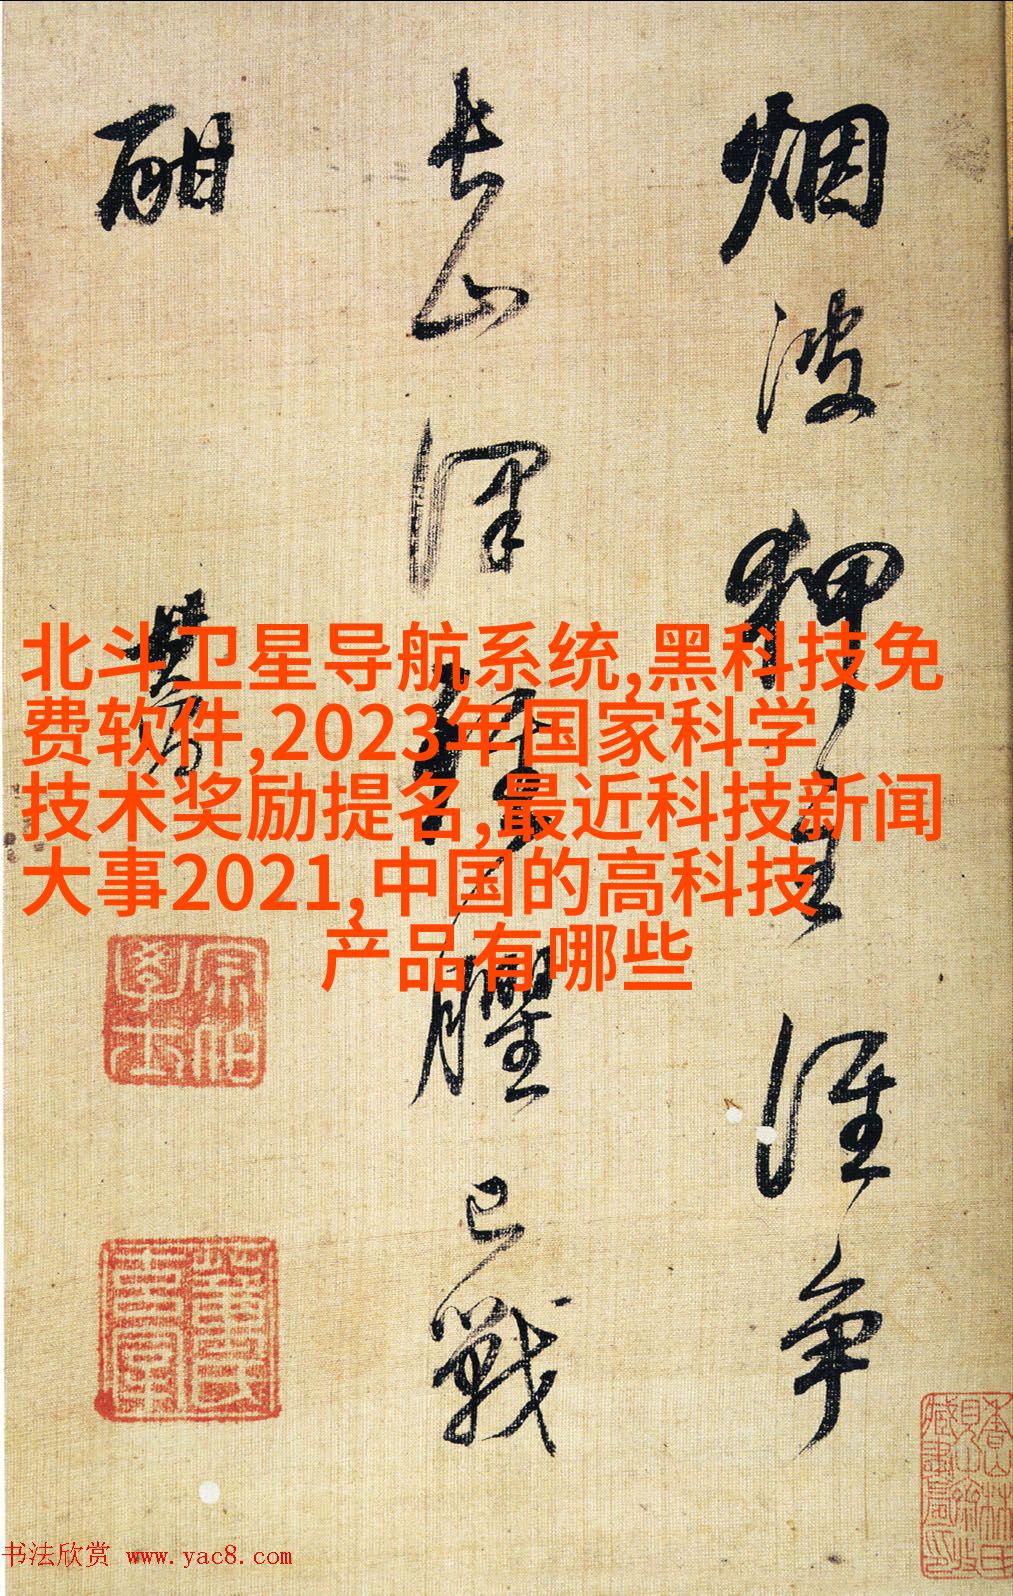 烟波狎主谁争
长山深
臞已戰
酣
其昌
北斗卫星导航系统,黑科技免
费软件,2023年国家科学
技术奖励提名,最近科技新闻
大事2021,中国的高科技
产品有哪些
宗伯學士
书法欣赏 www.yac8.com